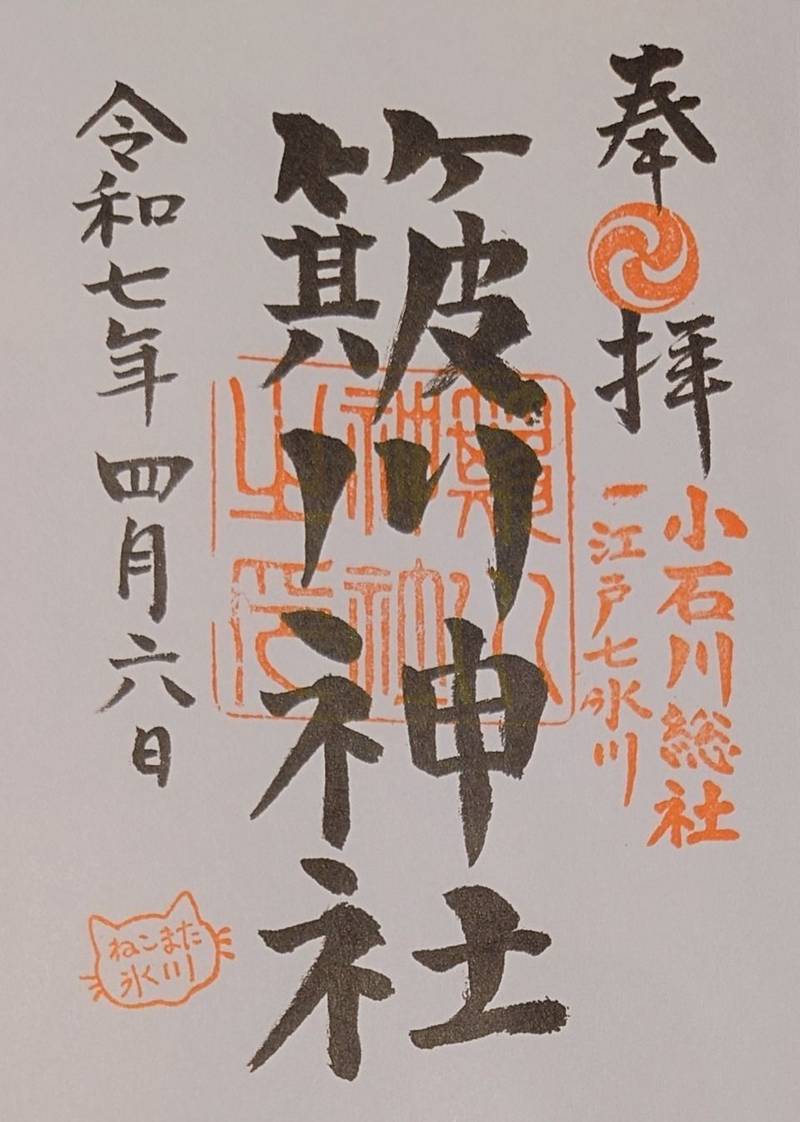 奉拝
小石川総社
一江戸七氷川
簸川神社
簸川神社之印
令和七年四月六日
ねこまた
氷川